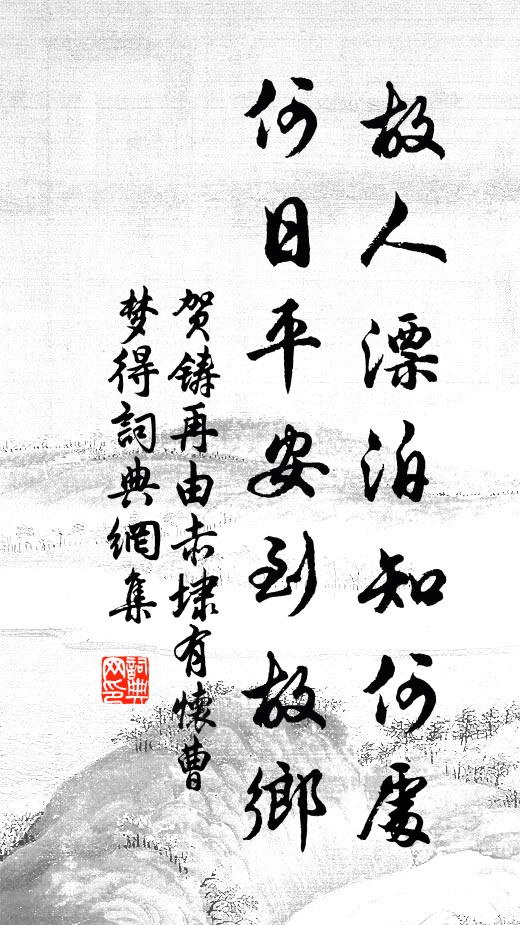 故人漂泊知何處
何日平安到故鄉
贺鑄再由赤埭有懷曹
梦得詞典網集
詞典
网印